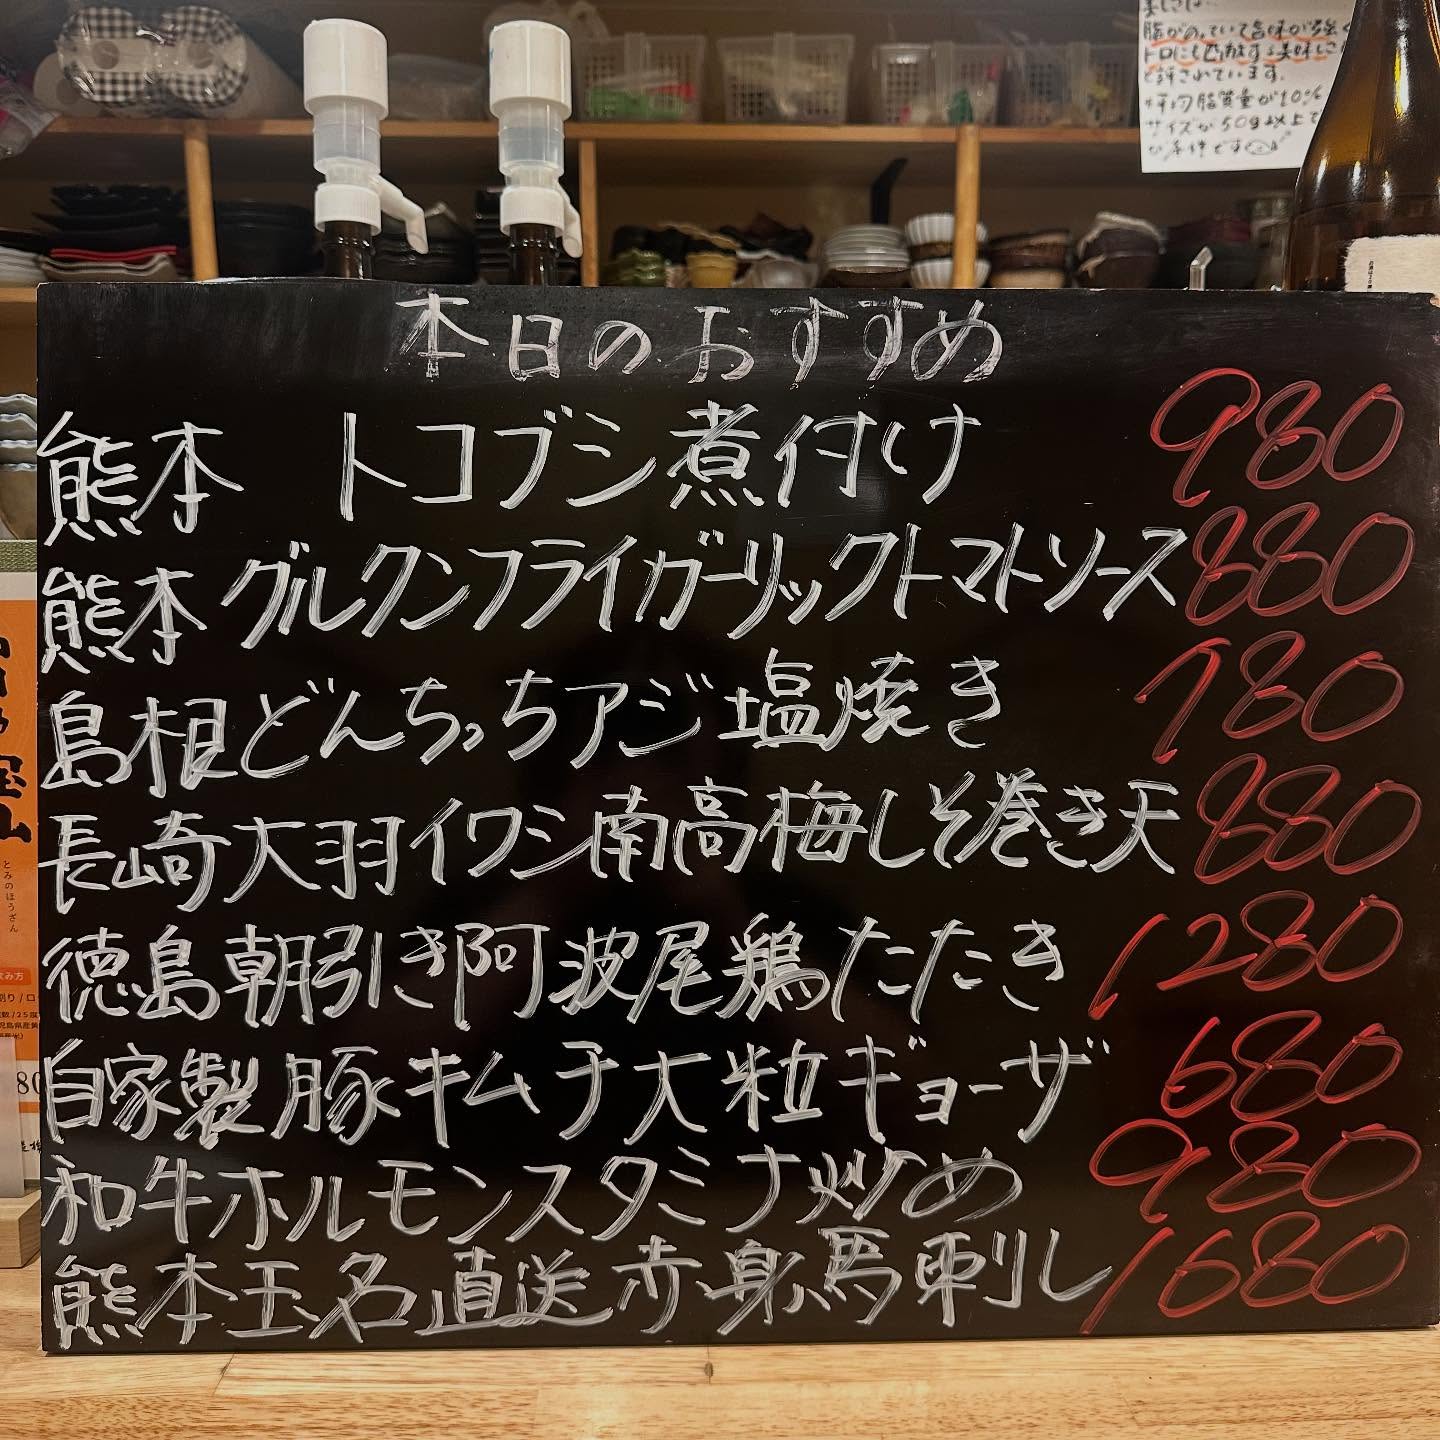 脂がのっていて旨味が強く
トロにも匹敵する美味しさ
と評されています。
平均脂質量が10%
サイズが50g以上で
が条件です
本日のおすすめ
熊本 トコブシ煮付け 980
熊本グルクンフライガーリックトマトソース 880
島根どんちっちアジ塩焼き 780
長崎大羽イワシ南高梅しそ巻き天 880
徳島朝引き阿波尾鶏たたき 1280
自家製豚キムチ大粒ギョーザ 680
和牛ホルモンスタミナ炒め 980
熊本玉名直送赤身馬刺し 1680
とみのほうざん
飲み方